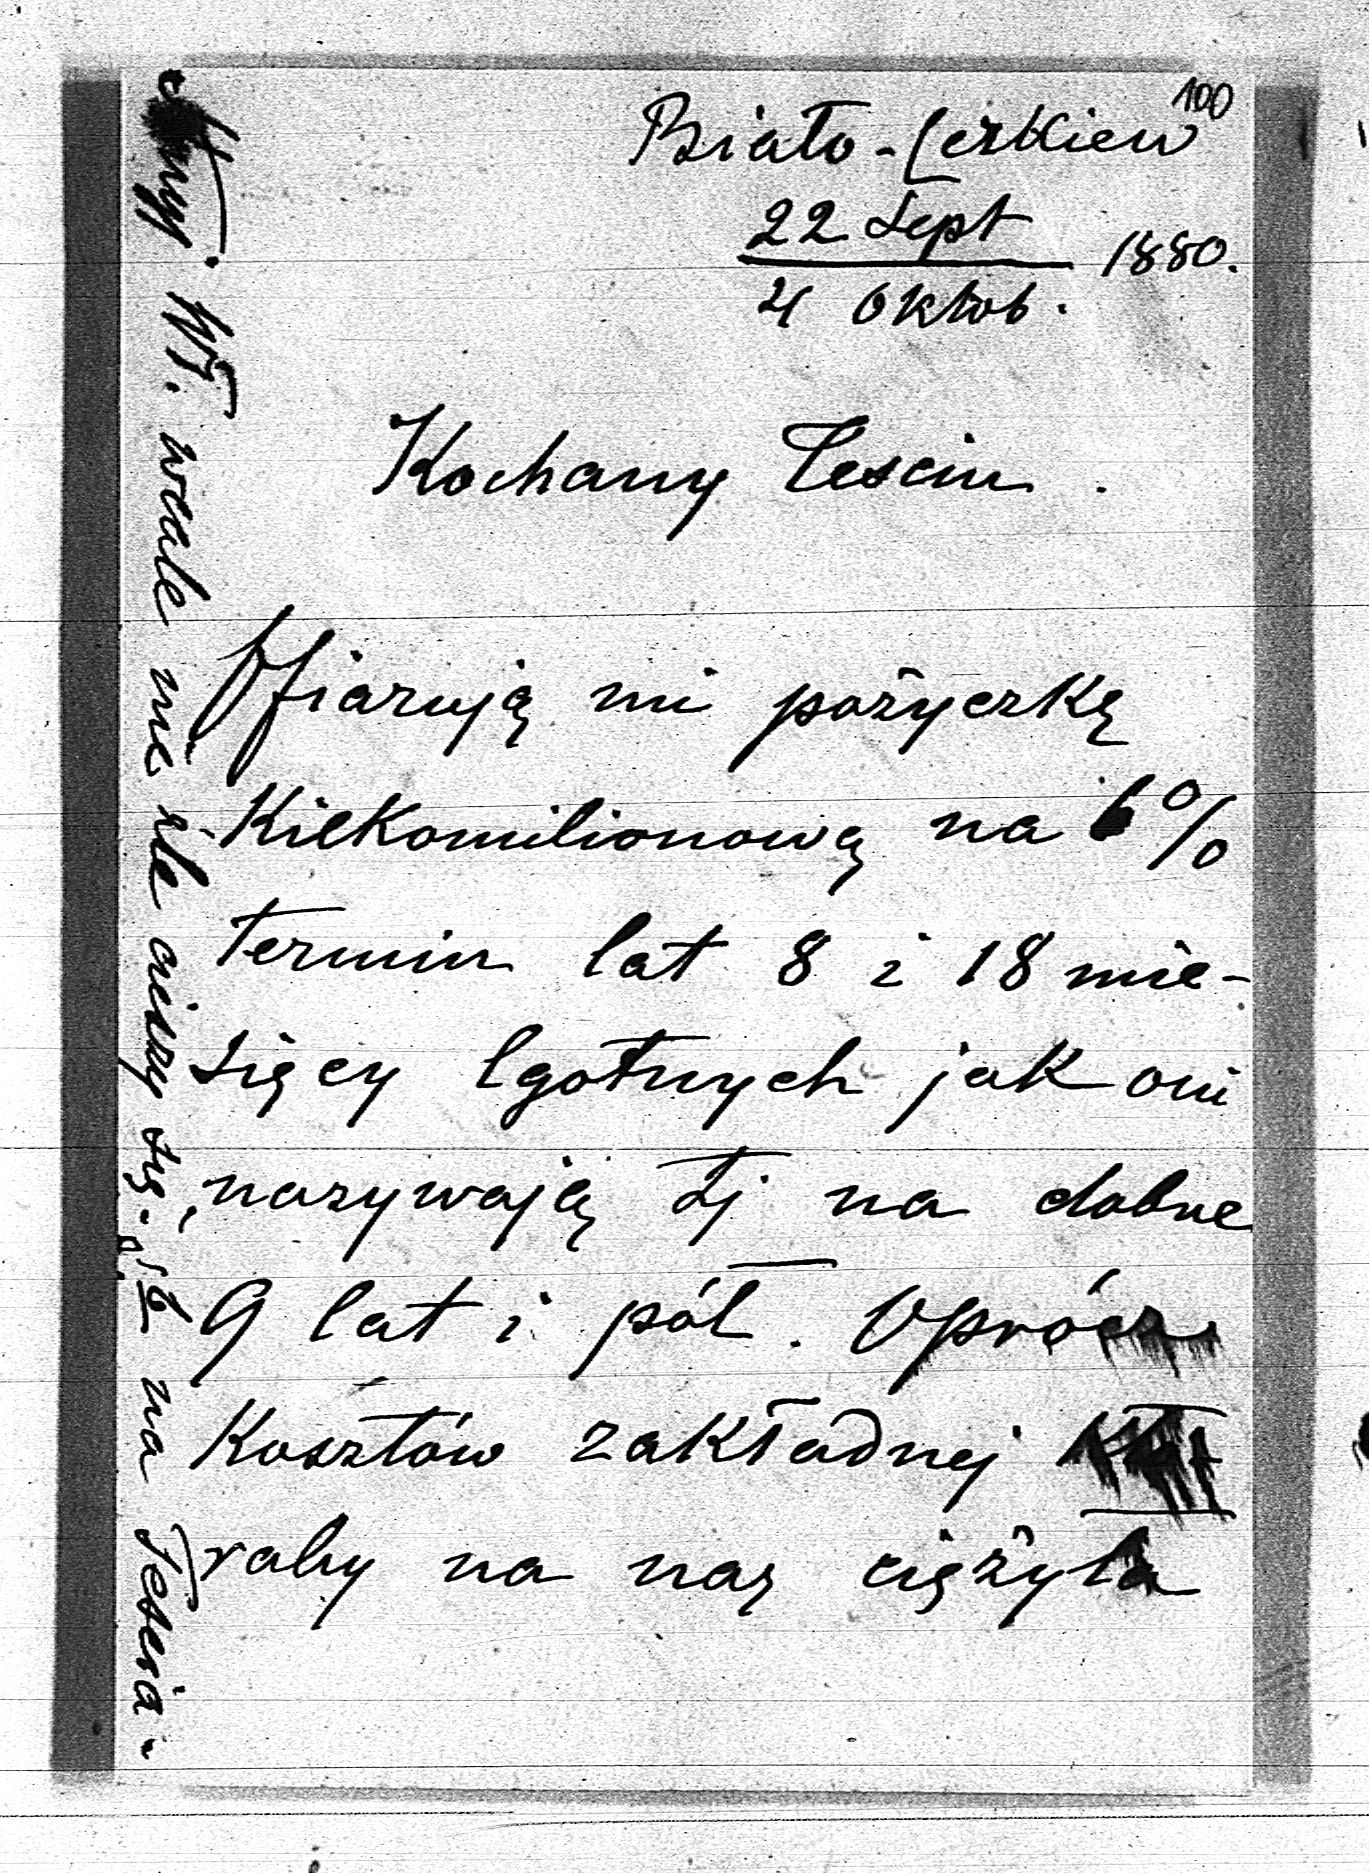 100
Biało-Cerkiew
22 Sept
4 Oktob. 1880.
Kochany Tesciu.
Ofiarują mi pożyczkę
Kilkomilionową na 6%
Termin lat 8 i 18 mie-
sięcy lgotnych jak oni
nazywają tj na dobre
9 lat i pół. Oprócz
Kosztów zakładnej
raby na nas ciężyła
wcale nie źle cieszy się
na Tescia